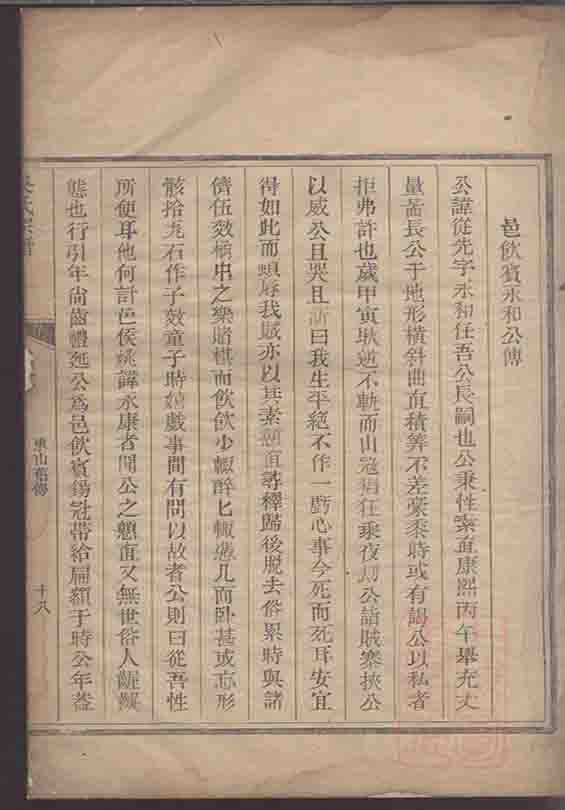 邑飲賓永和公傳
公諱從先字永和任吾公長嗣也公秉性索直康熙丙午舉充丈
量畓長公于地形橫斜曲直積筭不差豪黍時或有謁公以私者
拒弗許也歲甲寅耿逆不軌而山寇猖狂乘夜刼公詣賊寨挾公
以威公且哭且訴曰我生平絕不作一虧心事今死而死耳安宜
得如此而頻辱我賊亦以其素戇直尋釋歸後脫去俗累時與諸
儕伍效桃中之樂賭棋而飲飲少輒醉匕輒憑几而臥甚或忘形
骸拾瓦石作子效童子時嬉戲事間有問以故者公則曰從吾性
所使耳他何計邑侯姚諱永康者聞公之戇直又無世俗人齷齪
態也行引年尚齒禮延公為邑飲賓錫冠帶給扁額于時公年益
東山藝傳
十八